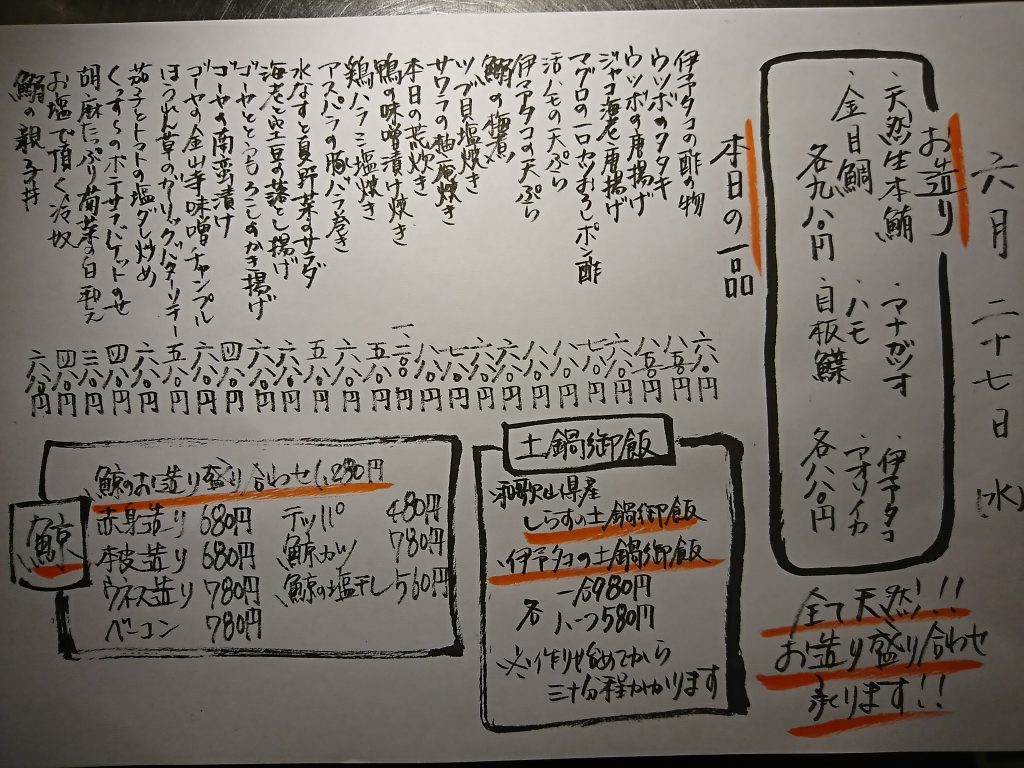 六月二十七日(水)
お造り
・天然生本鮪
・金目鯛
各九八〇円
・マナガツオ
・ハモ
・目板鰈
・伊予ダコ
・アオリイカ
各八八〇円
全て天然!!
お造り盛り合わせ
承ります!!
本日の一品
伊予ダコの酢の物 六八〇円
ウツボのタタキ 八八〇円
ウツボの唐揚げ 八八〇円
ジャコ海老唐揚げ
マグロの一口カツおろしポン酢
活ハモの天ぷら 八八〇円
伊予ダコの天ぷら
鰯の梅煮
ツブ貝塩焼き 六八〇円
サワラの柚庵焼き
本日の荒炊き 八八〇円
鴨の味噌漬け焼き
鶏ハラミ塩焼き 五八〇円
アスパラの豚バラ巻き 六八〇円
水なすと夏野菜のサラダ 五八〇円
海老と空豆の落とし揚げ 六八〇円
ゴーヤととうもろこしのかき揚げ 六八〇円
ゴーヤの南蛮漬け 四八〇円
ゴーヤの金山寺味噌チャンプル 六八〇円
ほうれん草のガーリックバターソテー 五八〇円
茄子とトマトの塩ダレ炒め 六八〇円
くんすーのポテサラバケットのせ 四八〇円
胡麻たっぷり菊菜の白和え 三八〇円
お塩で頂く冷奴 四八〇円
鰯の親子丼 六八〇円
土鍋御飯
和歌山県産
しらすの土鍋御飯
・伊予ダコの土鍋御飯
各 一合980円
ハーフ580円
※作り始めてから
三十分程かかります
鯨
鯨のお造り盛り合わせ1,280円
赤身造り 680円
本皮造り 680円
ウネス造り 780円
ベーコン 780円
テッパ 480円
鯨カツ 780円
鯨の塩干し 560円